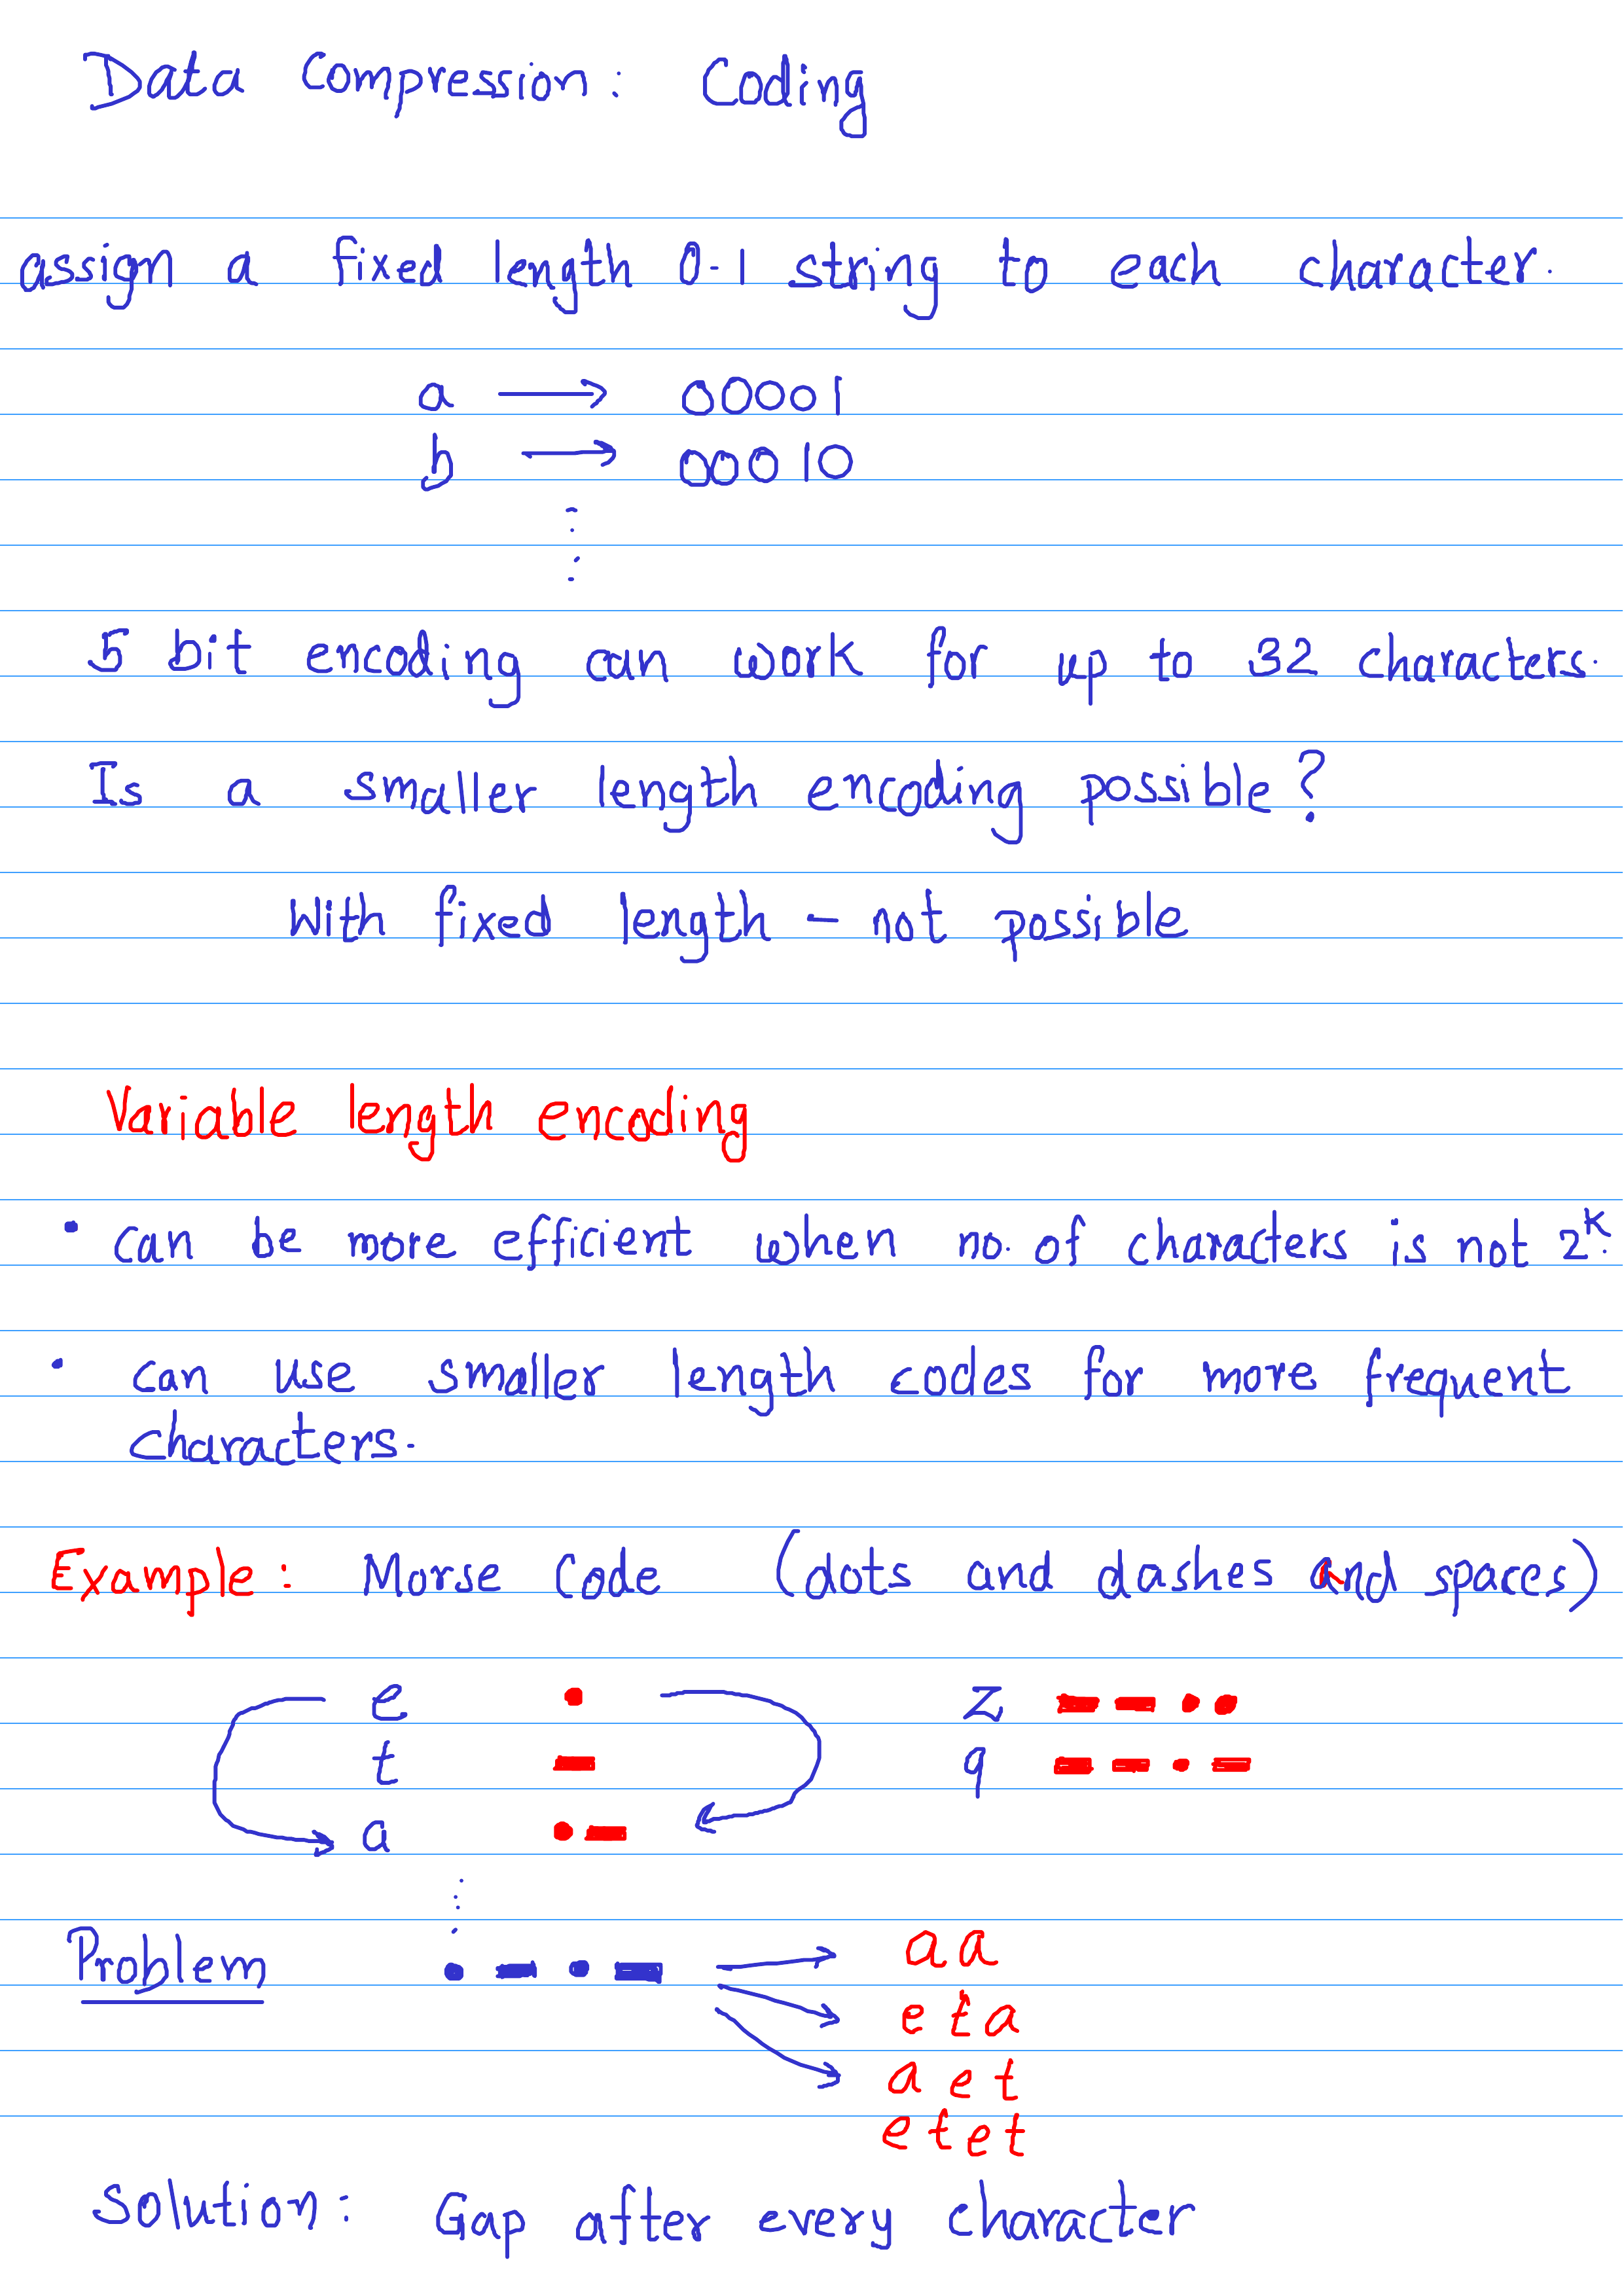 Data Compression: Coding
assign a fixed length 0-1 string to each character.
a → 00001
b → 00010
⋮
5 bit encoding can work for up to 32 characters.
Is a smaller length encoding possible?
With fixed length - not possible
Variable length encoding
• can be more efficient when no. of characters is not 2^k.
• can use smaller length codes for more frequent
characters.
Example: Morse Code (dots and dashes and spaces)
e • z – – • •
t – q – – • –
a • –
⋮
Problem • – • – → aa
→ eta
→ aet
etet
Solution: Gap after every character